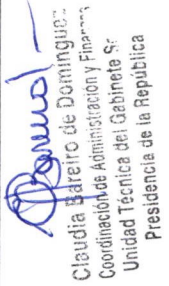 Claudia Bareiro de Dominguez
Coordinación de Administración y Finanzas
Unidad Técnica del Gabinete S
Presidencia de la República